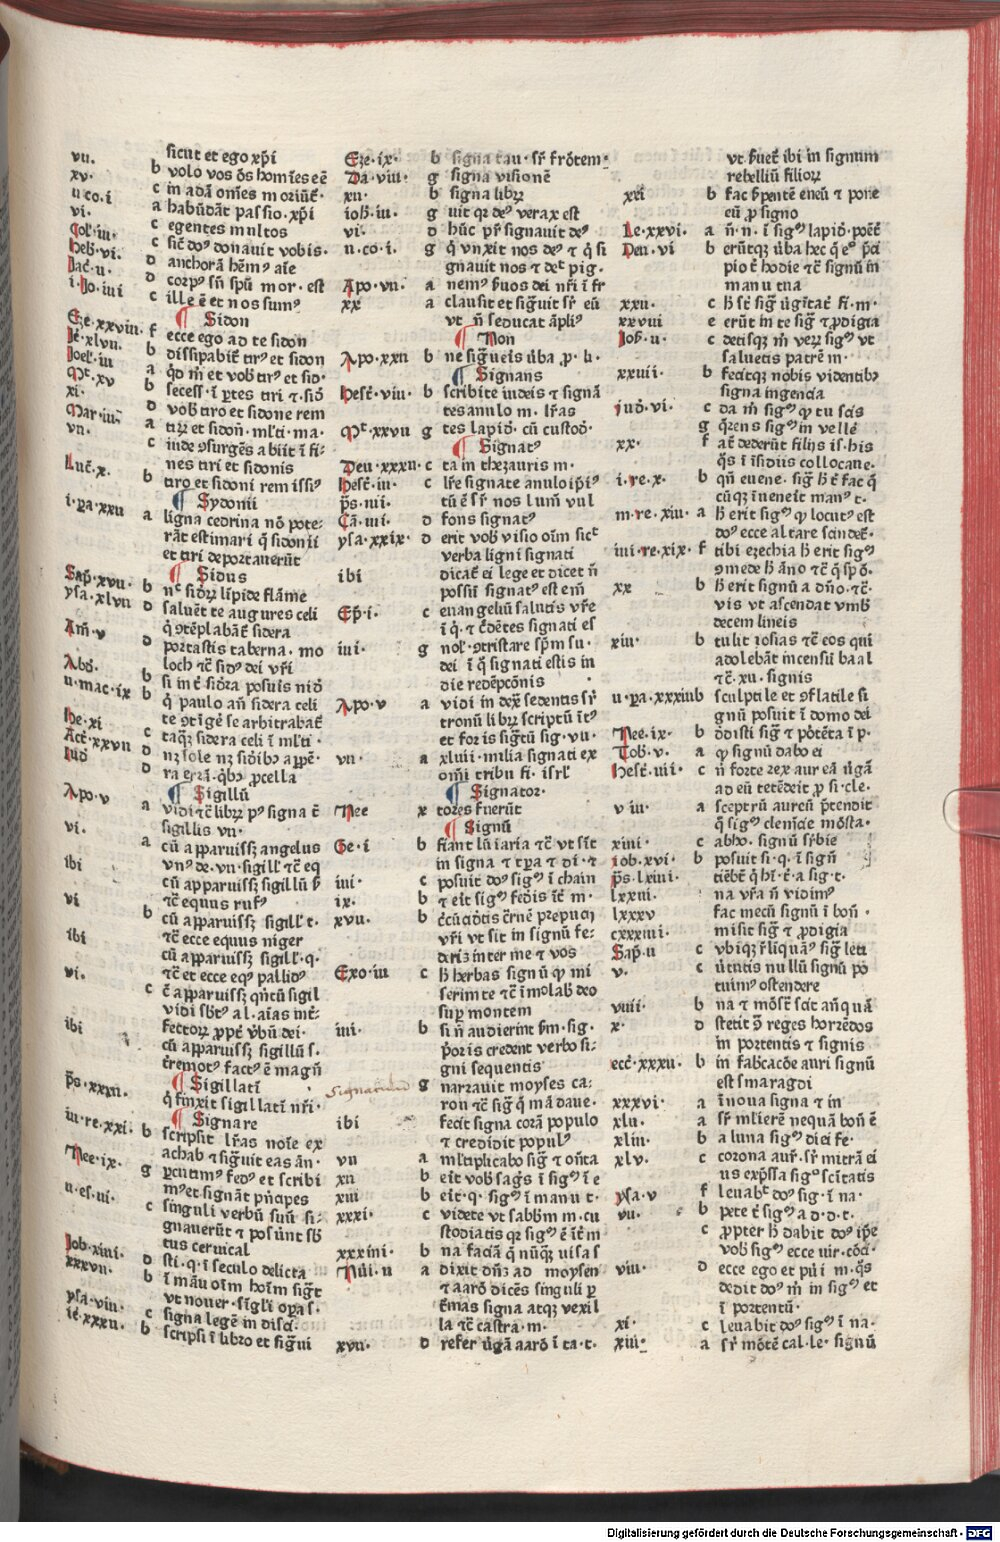 vu. sicut et ego xp̄i
xv. b volo vos ōs homīes eē
u co.i c in adā om̄es moriūt̄.
vi. a habūdāt passio.xp̄i
Gol̄.iii. c egentes multos
Heb̄.vi. c sic̄ do⁹ donauit vobis.
Iac̄.u. d anchorā hēm⁹ aīe
i.Io.iiii d corp⁹ sn̄ spū mor.est
c ille ē et nos sum⁹
¶ Sidon
Eze.xxviii. f ecce ego ad te sidon
Ie.xlvii. b dissipabit̄ tir⁹ et sidon
Ioel̄.iii a qd̄ m̄ et vob̄ tir⁹ et sid.
Mt̄.xv b secess.ī p̄tes tiri ⁊ sid̄
xi. d vob̄ tiro et sidone rem
Mar.iii. a tirr̄ et sidoñ.ml̄ti.ma.
vii. c inde ꝯsurgēs abiit ī fi.
nes tiri et sidonis
Luc̄.x. b tiro et sidoni remissi⁹
¶ Sydonii
i.pa.xxii a ligna cedrina nō pote:
rāt estimari q̄ sidonii
et tiri deportauerūt
¶ Sidus
Sap̄.xvii. b n̄c sid̄ꝝ lipide flāme
ysa.xlvii d saluēt te augures celi
q̄ ꝯtēplabāt̄ sidera
Am̄.v d portastis taberna.mo
loch ⁊c̄ sid⁹ dei vr̄i
Abd̄. b si int̄ sid̄ra posuis nid̄
ii.mac.ix b q̄ paulo an̄ sidera celi
te ꝯtīgē se arbitrabat̄
He.xi c taqʒ sidera celi ī ml̄ti.
Act̄.xxvii d nʒ sole nʒ sid̄ibꝰ appē.
Iud̄ d ra errā.qb̄ꝰ ꝓcella
¶ Sigillū
Apo.v a vidi ⁊c̄ librꝝ p⁹ signa t̄
sigillis vii.
vi. a cū apparuissʒ angelus
vn⁹ de.vii.sigill̄ ⁊c̄ eq
ibi cū apparuissʒ sigillū b̄
⁊c̄ equus ruf⁹
vi b cū apparuissʒ sigill̄ t.
⁊c̄ ecce equus niger
ibi cū apparuissʒ sigill̄.q.
⁊c̄ et ecce eq⁹ pallid⁹
vi. c c̄ apparuissʒ qn̄tū sigil
vidi sb̄t⁹ al.aīas int̄:
fectorꝝ ꝓpt̄ v̄bū dei.
ibi cū apparuissʒ sigillū s.
t̄remot⁹ fact⁹ ē magn̄
¶ Sigillati
p̄s.xxxii. q̄ finxit sigillati nr̄i.
¶ Signare
iii.re.xxi. b scripsit lr̄as noīe ex
achab ⁊ sig̅uit eas ān.
Nee.ix. g p̄cutim⁹ fed⁹ et scribi
m⁹et signāt pn̄cipes
ii.es.vi. c singuli verbū suū si:
gnauerūt ⁊ posūnt sb̄
tus ceruical
Iob.xiiii. d sti.q.i seculo delicta
xxxvii. b ī māu oīm hoīm sig̅t
vt nouer.sīgl̄i oꝑa s.
ysa.viii. c signa legē in disci.
ie.xxxii. b scripsi ī libro et sig̅ui
Eze.ix. b signa tau.sr̄ frōtem.
Da.viii. g signa visionē
xii. b signa librꝝ
ioh̄.iii. g uit qꝛ de⁹ verax est
vi. d hūc pr̄ signauit de⁹
ii.co.i. g q̄ vnxit nos de⁹ ⁊ q̄ si
gnauit nos ⁊ ded̄ pig.
Apo.vii. a nem⁹ b̄uos dei nr̄i ī fr
xx a clausit et sig̅uit sr̄ eū
vt n̄ seducat āpli⁹
¶ Non
Apo.xxii b ne sig̅ueis v̄ba ꝓ.h.
¶ Signans
Hest̄.viii. b scribite iudeis ⁊ signā
tes anulo m.lr̄as
Mt̄.xxvii g tes lapid̄.cū custod̄.
¶ Signat⁹
Deu.xxxii. c ta in thezauris m.
Hest̄.iii. c lr̄e signate anulo ipi⁹
p̄s.iiii. tū ē sr̄ nos lum̄ vul
Cā.iiii. d fons signat⁹
ysa.xxix. d erit vob̄ visio oīm sic̄
verba ligni signati
ibi dicat̄ ei lege et dicet n̄
possū signat⁹ est em̄
Ep̄.i. c euangeliū salutis vr̄e
ī q̄.⁊ c̄dētes signati es
iiii. g nol̄.ꝯtristare sp̄m su.
dei ī q̄ signati estis in
die redēpcōnis
Apo.v a vidi in dex̄ sedentis sr̄
tronū librꝝ scriptū īt⁹
et foris sig̅tū sig.vii.
vii. a xliiii.milia signati ex
om̄i tribu fi.isrl̄
¶ Signator.
Nee x tores fuerūt
¶ Signū
Ge.i b fiant lūiaria ⁊c̄ vt sīt
in signa ⁊ tꝑa ⁊ dī.⁊
iiii. c posuit do⁹ sig⁹ ī chain
ix. b ⁊ eīt sig⁹ fed̄is īt̄ m.
xvii. b c̄cūcid̄tis c̄rnē prepucij
vr̄i vt sit in signū fe:
deris inter me ⁊ vos
Exo.iii c h̄ herbas signū qꝫ mi
serim te ⁊c̄ īmolab̄ deo
suꝑ montem
iiii. b si n̄ audierint b̄m.sig.
p̄oris credent verbo si:
gni sequentis
Signandū g narrauit moyses ca:
ron ⁊c̄ sig̅ q̄ mādaue.
ibi fecit signa corā populo
⁊ credidit popul⁹
vii a ml̄tiplicabo sig̅ ⁊ on̄ta
xii b eīt vob̄ sag̅s ī sig⁹ ī e
xiii b eīt.q.sig⁹ ī manu t.
xxxi. c videte vt sabb̄m m.cu
stodiatis qꝛ sig⁹ ē īt̄ m
xxxiiii. b na faciā q̄ nūqʒ uisa s
Nūi.ii a dixit dn̄s ad moysen
⁊ aarō dicēs singuli ꝑ
t̄mas signa atqʒ vexil
la ⁊c̄ castra.m.
xvii. d refer v̄gā aarō ī ta.t.
vt b̄uet̄ ibi in signum
rebelliū filiorꝝ
xxi b fac b̄pentē eneū ⁊ pone
eū ꝓ signo
Ie.xxvi. a n̄.n.ī sig⁹ lapid̄.poēt̄
Deu.vi b erūtqʒ v̄ba hec q̄ e° p̄ci
pio t̄ hodie ⁊c̄ signū in
manu tua
xxii. c h̄ st̄ sig̅ v̄gītat̄ fi.m.
xxviii e erūt in te sig̅ ⁊ ꝓdigia
Ioh̄.ii. c detisqʒ m̄ verꝝ sig⁹ vt
saluetis patrē m.
xxiii. b fecitqʒ nobis videntibꝰ
signa ingencia
iud̄.vi. c da m̄ sig⁹ qꝫ tu scis
g q̄rens sig⁹ in velle
xx. f at̄ dederūt filijs is.his
q̄s ī īsidiis collocaue.
i.re.x. b qn̄ euene.sig̅ h̄ t̄ fac q̄
cūqʒ īueneīt man⁹ t.
iii.re.xiii. a h̄ erit sig⁹ qꝫ locut⁹ est
do⁹ ecce altare scindet̄.
iiii.re.xix. f tibi ezechia h̄ erit sig⁹
ꝯmede h̄ āno ⁊c̄ q̄ spō.
xx b h̄ erit signū a dn̄o.⁊c̄.
vis vt ascendat vmb̄
decem lineis
xiii. b tulit iosias ⁊c̄ eos qui
adolebāt incensū baal
⁊c̄.xii.signis
ii.pa.xxxiii b sculptile et ꝯflatile si
gnū posuit ī domo dei
Nee.ix. b d̄disti sig̅ ⁊ pōtēta ī p.
Tob̄.v. a qꝫ signū dabo ei
Hest̄.iiii. c n̄ forte rex aureā v̄gā
ad eū tetēdeīt ꝓ si.cle.
viii. a sceptrū aureū p̄tendit
q̄ sig⁹ clemēcie mōsta.
xiiii. c abhꝰ.signū sr̄bie
iob.xvi. b posuit s.q.ī sign̄
p̄s.lxiiii. tiēbt̄ q̄ hī.t̄.a sig.t.
lxxiii. na vr̄a n̄ vidim⁹
lxxxv fac mecū signū ī boñ.
cxxxiiii. misit sig̅ ⁊ ꝓdigia
Sap̄.ii c vbiqʒ r̄liquā⁹ sig̅ leti
v. c v̄tutis nullū signū po
tuim⁹ ostendere
viii. b na ⁊ mōst̄ scit an̄quā
x. d stetit ꝯ̄ reges horrēdos
in portentis ⁊ signis
ecc̄.xxxii. b in fab̄cacōe auri signū
est smaragdi
xxxvi. a īnoua signa ⁊ in
xlii. a sr̄ ml̄ierē nequā boñ ē
xliii. b a luna sig⁹ diei fe.
xlv. c corona aur̄.sr̄ mitrā ei
us exp̄ssa sig° scītatis
ysa.v f leuab̄ do⁹ sig.ī na.
vii. b pete t̄ sig⁹ a d.d.t.
c ꝓpter h̄ dabit do⁹ ip̄e
vob̄ sig⁹ ecce uir.cōci.
viii. d ecce ego et pūi m.q̄s
dedit do⁹ m̄ in sig⁹ et
ī portentū.
xi. c leuabit do⁹ sig⁹ ī na.
xiii. a sr̄ mōtē cal.le.signū
Digitalisierung gefördert durch die Deutsche Forschungsgemeinschaft - DFG